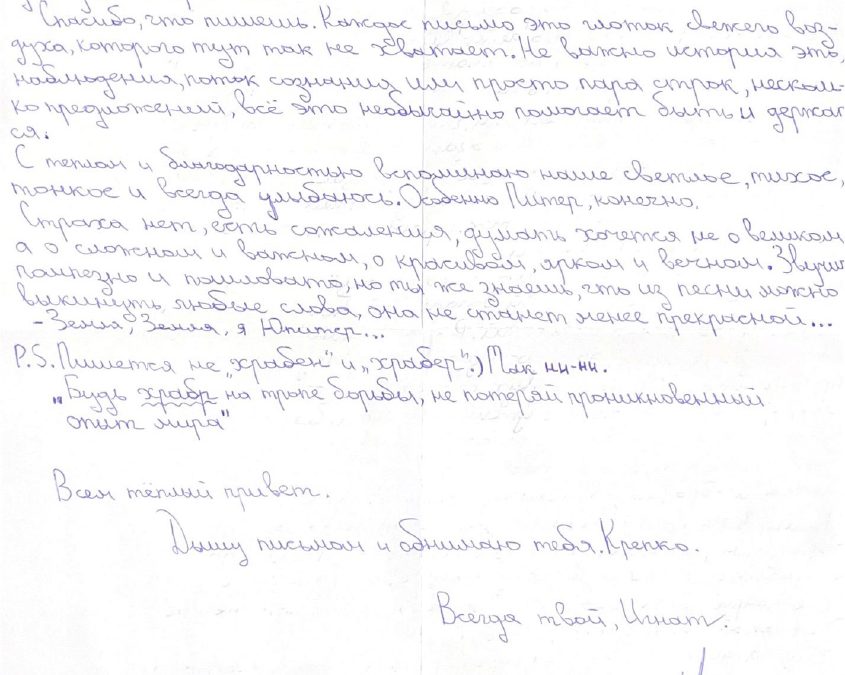 Спасибо, что пишешь. Каждое письмо это глоток свежего воз-
духа, которого тут так не хватает. Не важно история это,
наблюдения, поток сознания или просто пара строк, несколь-
ко предложений, всё это необычайно помогает быть и держат
ся.
С теплом и благодарностью вспоминаю наше светлое, тихое,
тонкое и всегда улыбаюсь. Особенно Питер, конечно.
Страха нет, есть сожаления, думать хочется не о великом
а о сложном и важном, о красивом, ярком и вечном. Звучит
помпезно и пошловато, но ты же знаешь, что из песни можно
выкинуть любые слова, она не станет менее прекрасной...
- Земля, Земля, я Юпитер...
P.S. Пишется не „храбен" и „храбер".) Так ни-ни.
„Будь храбр на тропе борьбы, не потеряй проникновенный
опыт мира"
Всем тёплый привет.
Дышу письмом и обнимаю тебя. Крепко.
Всегда твой, Игнат.